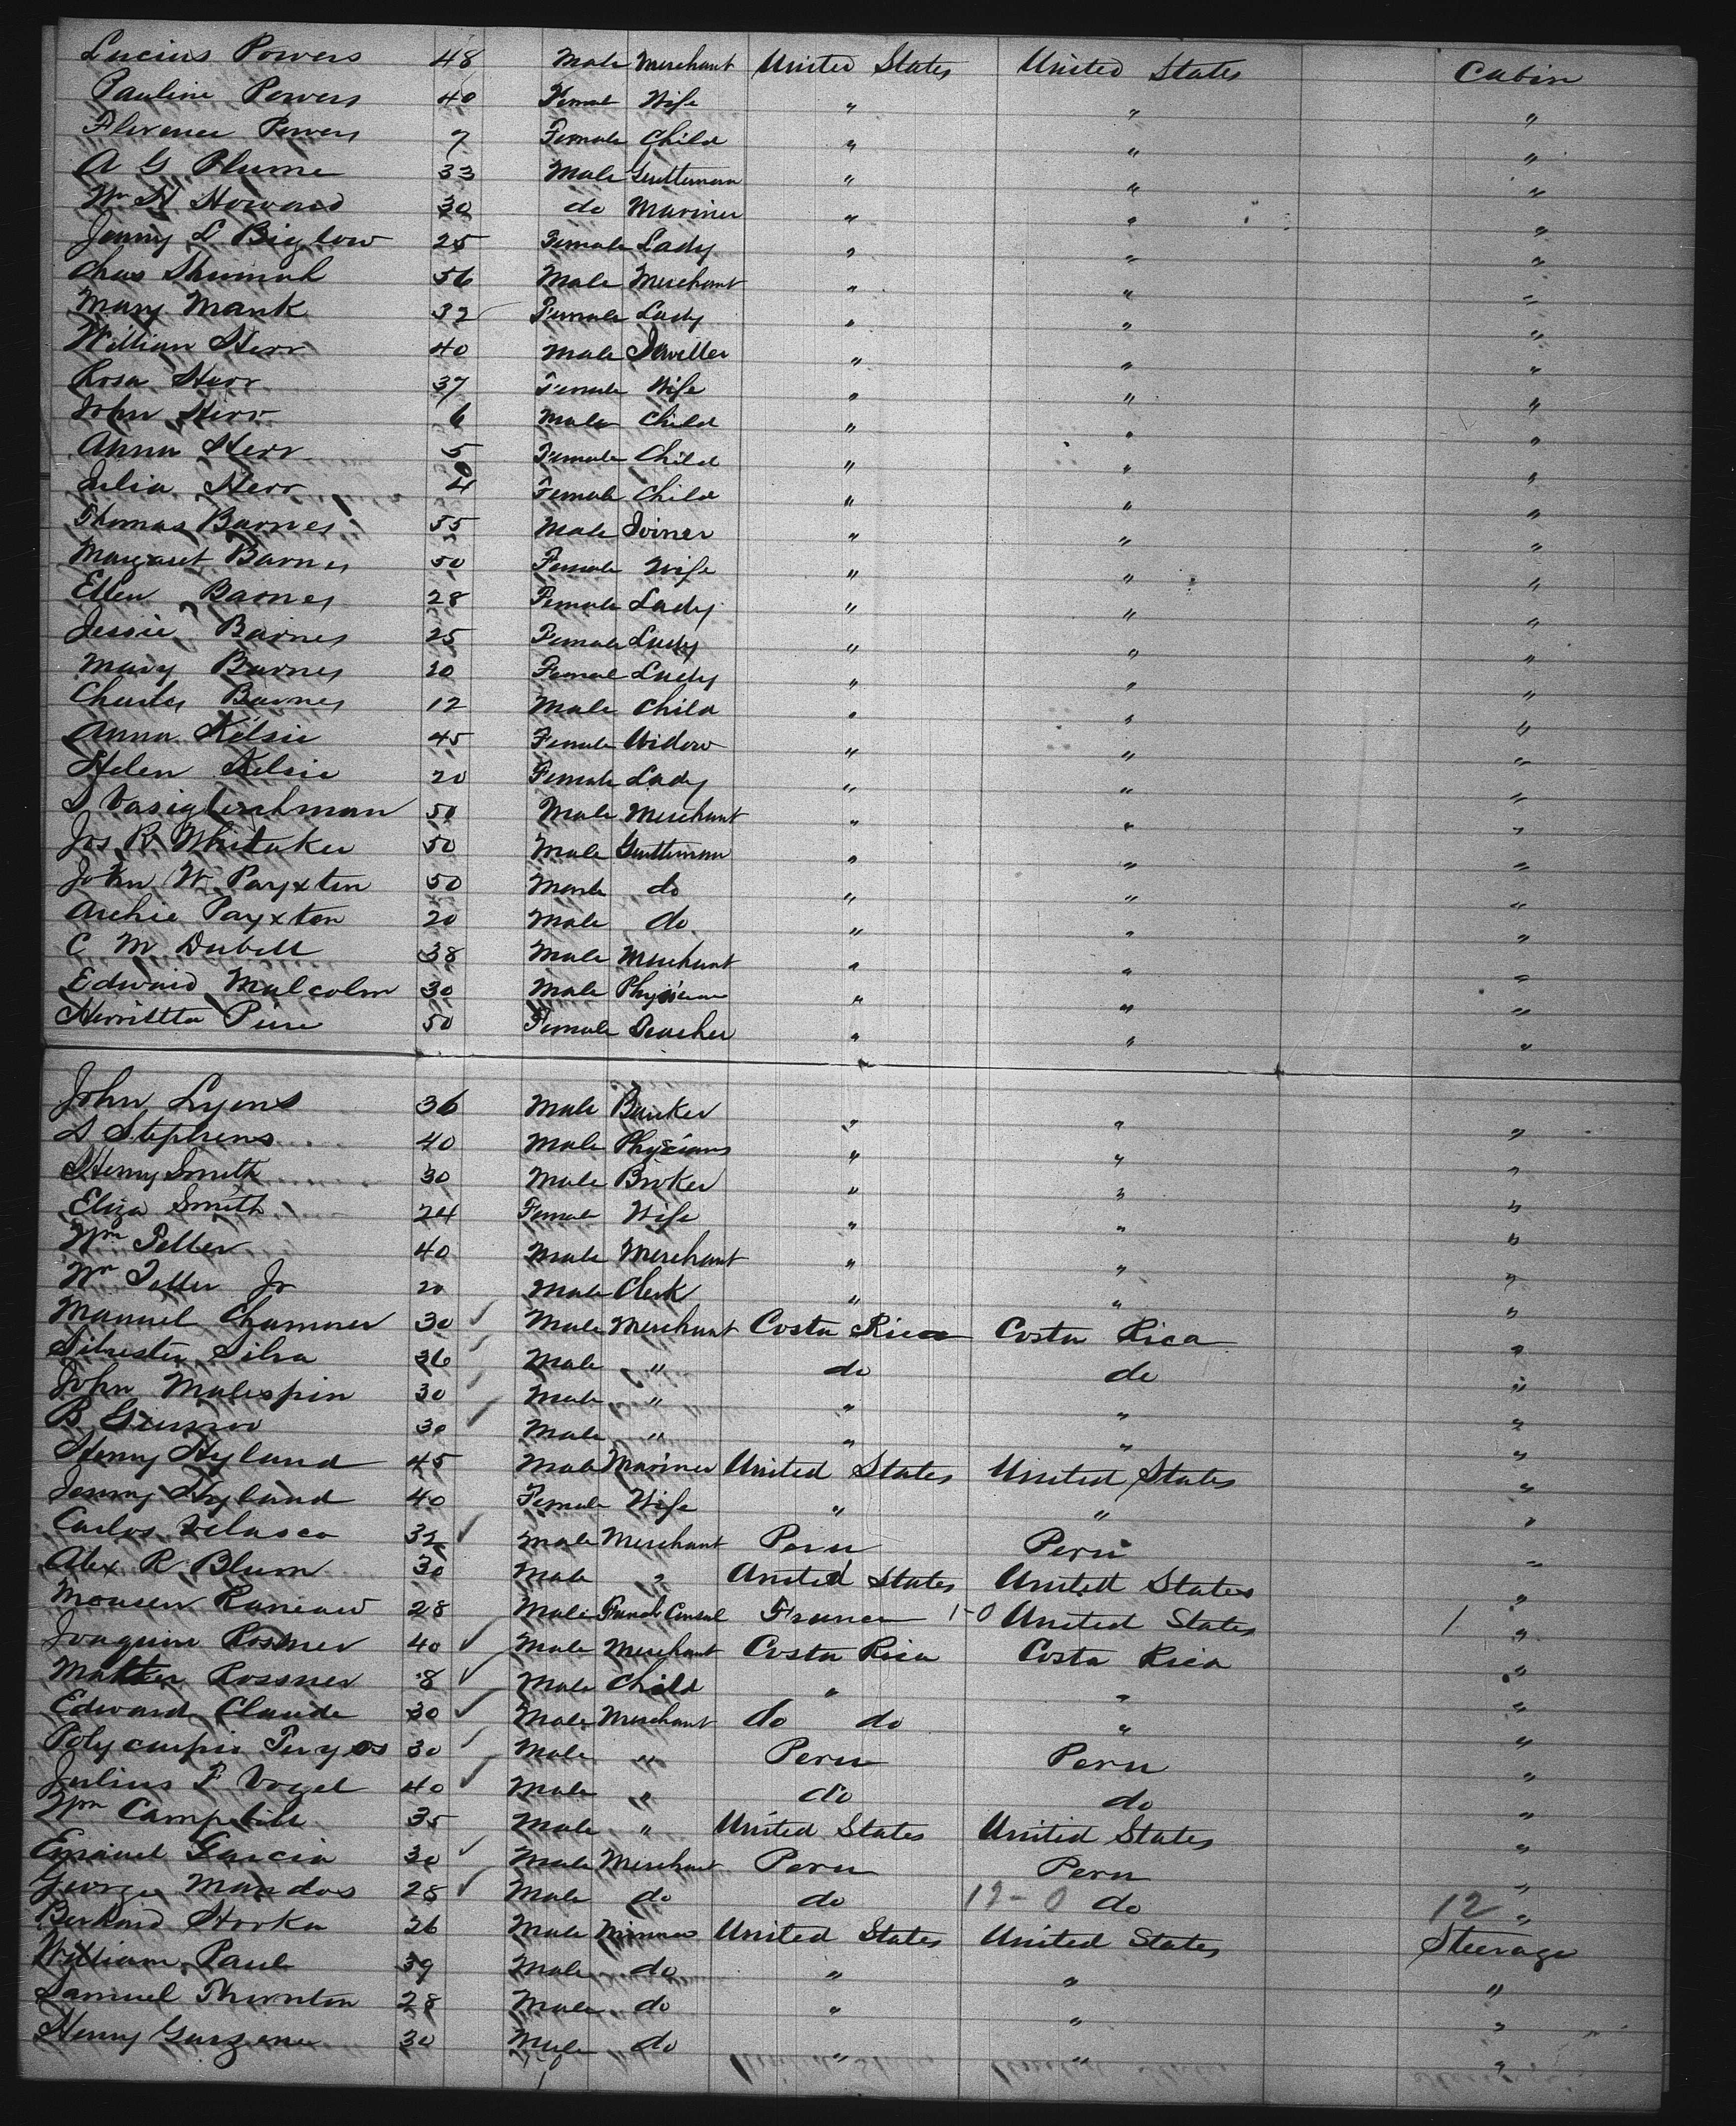 Lucius Powers 48 Male Merchant United States United States Cabin
Pauline Powers 40 Female Wife " " "
Florence Powers 7 Female Child " " "
A G Plume 33 Male Gentleman " " "
Wm H Howard 30 do Mariner " " "
Jenny L Biglow 25 Female Lady " " "
Chas 56 Male Merchant " " "
Mary Mank 32 Female Lady " " "
William Herr 40 Male Jeweller " " "
Rosa Herr 37 Female Wife " " "
John Herr 6 Male Child " " "
Anna Herr 5 Female Child " " "
Julia Herr 4 Female Child " " "
Thomas Barnes 55 Male Joiner " " "
Margaret Barnes 50 Female Wife " " "
Ellen Barnes 28 Female Lady " " "
Jessie Barnes 25 Female Lady " " "
Mary Barnes 20 Female Lady " " "
Charles Barnes 12 Male Child " " "
Anna Kelsie 45 Female Widow " " "
Helen Kelsie 20 Female Lady " " "
50 Male Merchant " " "
Jos R Whitaker 50 Male Gentleman " " "
John W Payxton 50 Male do " " "
Archie Payxton 20 Male do " " "
C M Dubell 38 Male Merchant " " "
Edward Malcolm 30 Male Physician " " "
Henritta 50 Female Teacher " " "
John Lyons 36 Male Banker " " "
D Stephens 40 Male Physcians " " "
Henry Smith 30 Male Broker " " "
Eliza Smith 24 Female Wife " " "
Wm 40 Male Merchant " " "
Wm Jr 20 Male Clerk " " "
Manuel 30 Male Merchant Costa Rica Costa Rica "
Silvester Silva 36 Male " do do "
John Malespin 30 Male " " " "
B 30 Male " " " "
Henry Hyland 45 Male Mariner United States United States "
Jenny Hyland 40 Female Wife " " "
Carlos Velasco 32 Male Merchant Peru Peru "
Alex R Blum 30 Male " United States United States "
28 Male French Consul France 1-0 United States 1 "
Joaquin Rossner 40 Male Merchant Costa Rica Costa Rica "
Rossner 8 Male Child " " "
Edward Claude 30 Male Merchant do do " "
30 Male " Peru Peru "
Julius F Vogel 40 Male " do do "
Wm Campbill 35 Male " United States United States "
Emanuel Garcia 30 Male Merchant Peru Peru "
George Mandos 28 Male do do 12-0 do 12 "
26 Male United States United States Steerage
William Paul 39 Male do " " "
Samuel Thornton 28 Male do " " "
Henry 30 Male do " " "